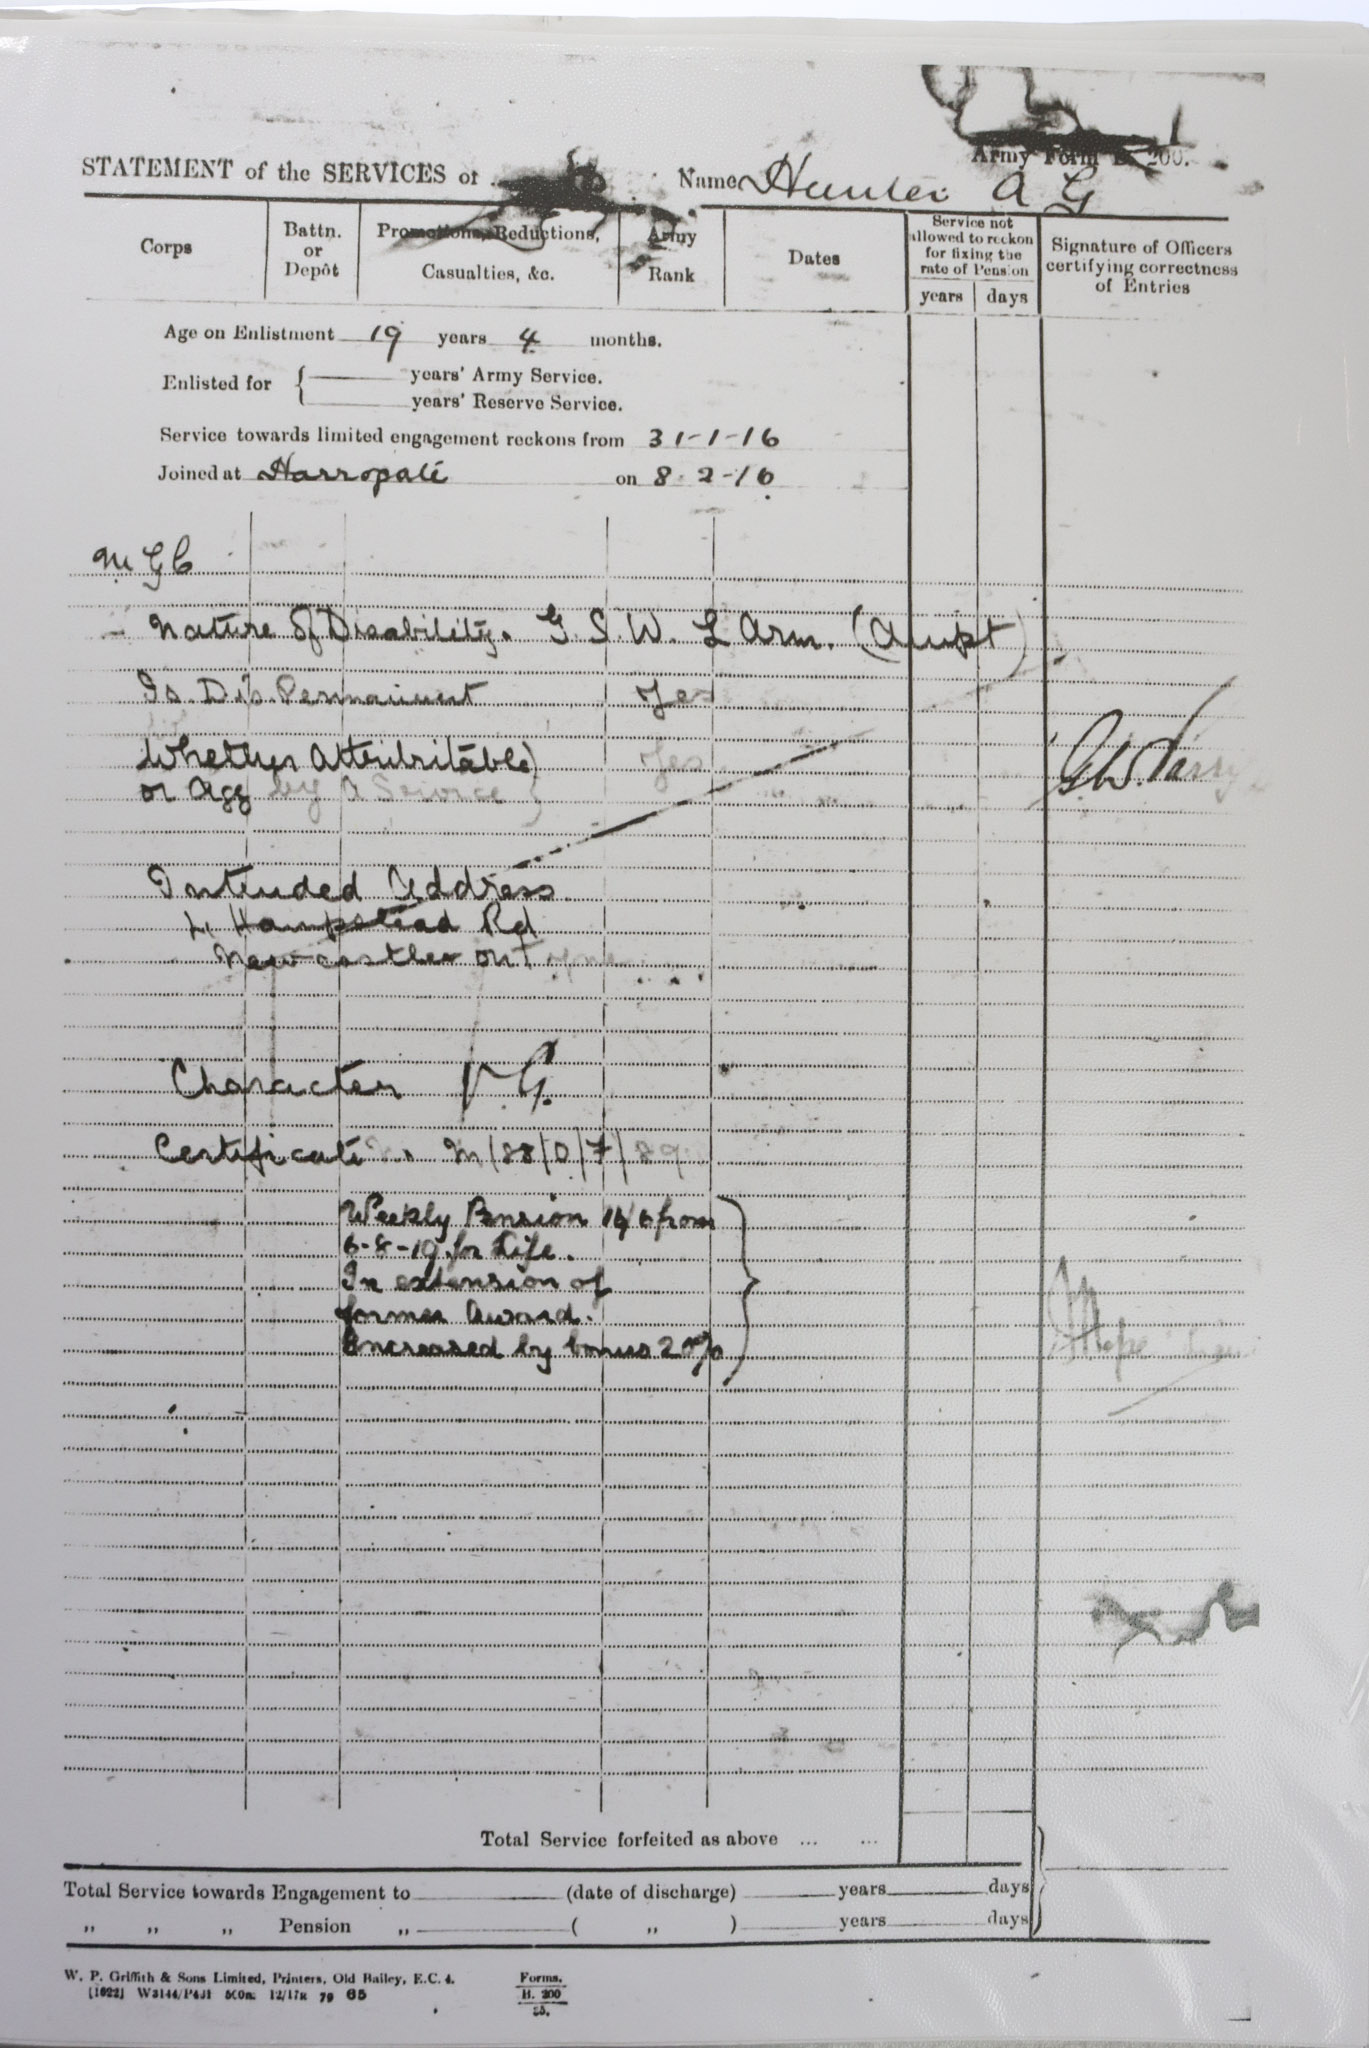 Army Form B. 200.
STATEMENT of the SERVICES of Name Hunter A G
Corps
Battn. or Depôt
Promotions, Reductions, Casualties, &c.
Army Rank
Dates
Service not allowed to reckon for fixing the rate of Pension
years days
Signature of Officers certifying correctness of Entries
Age on Enlistment 19 years 4 months.
Enlisted for { years' Army Service.
years' Reserve Service.
Service towards limited engagement reckons from 31-1-16
Joined at Harrogate on 8.2-16
M G C
Nature of Disability. G S W. L Arm. (Ampt)
Is Dis Permanent Yes
Whether Attributable) Yes
or Agg by A Service }
G W Parry
Intended Address
4 Hampstead Rd
Newcastle on Tyne
Character V.G.
Certificate M/88/0/7/89
Weekly Pension 16/6 from
6-8-19 for Life.
In extension of
former Award.
Increased by bonus 20%
Total Service forfeited as above ... ...
Total Service towards Engagement to (date of discharge) years days
„ „ „ Pension „ ( „ ) years days
W. P. Griffith & Sons Limited, Printers, Old Bailey, E.C. 4.
[1622] W3144/P431 500m 12/17R 79 65
Forms.
B. 200